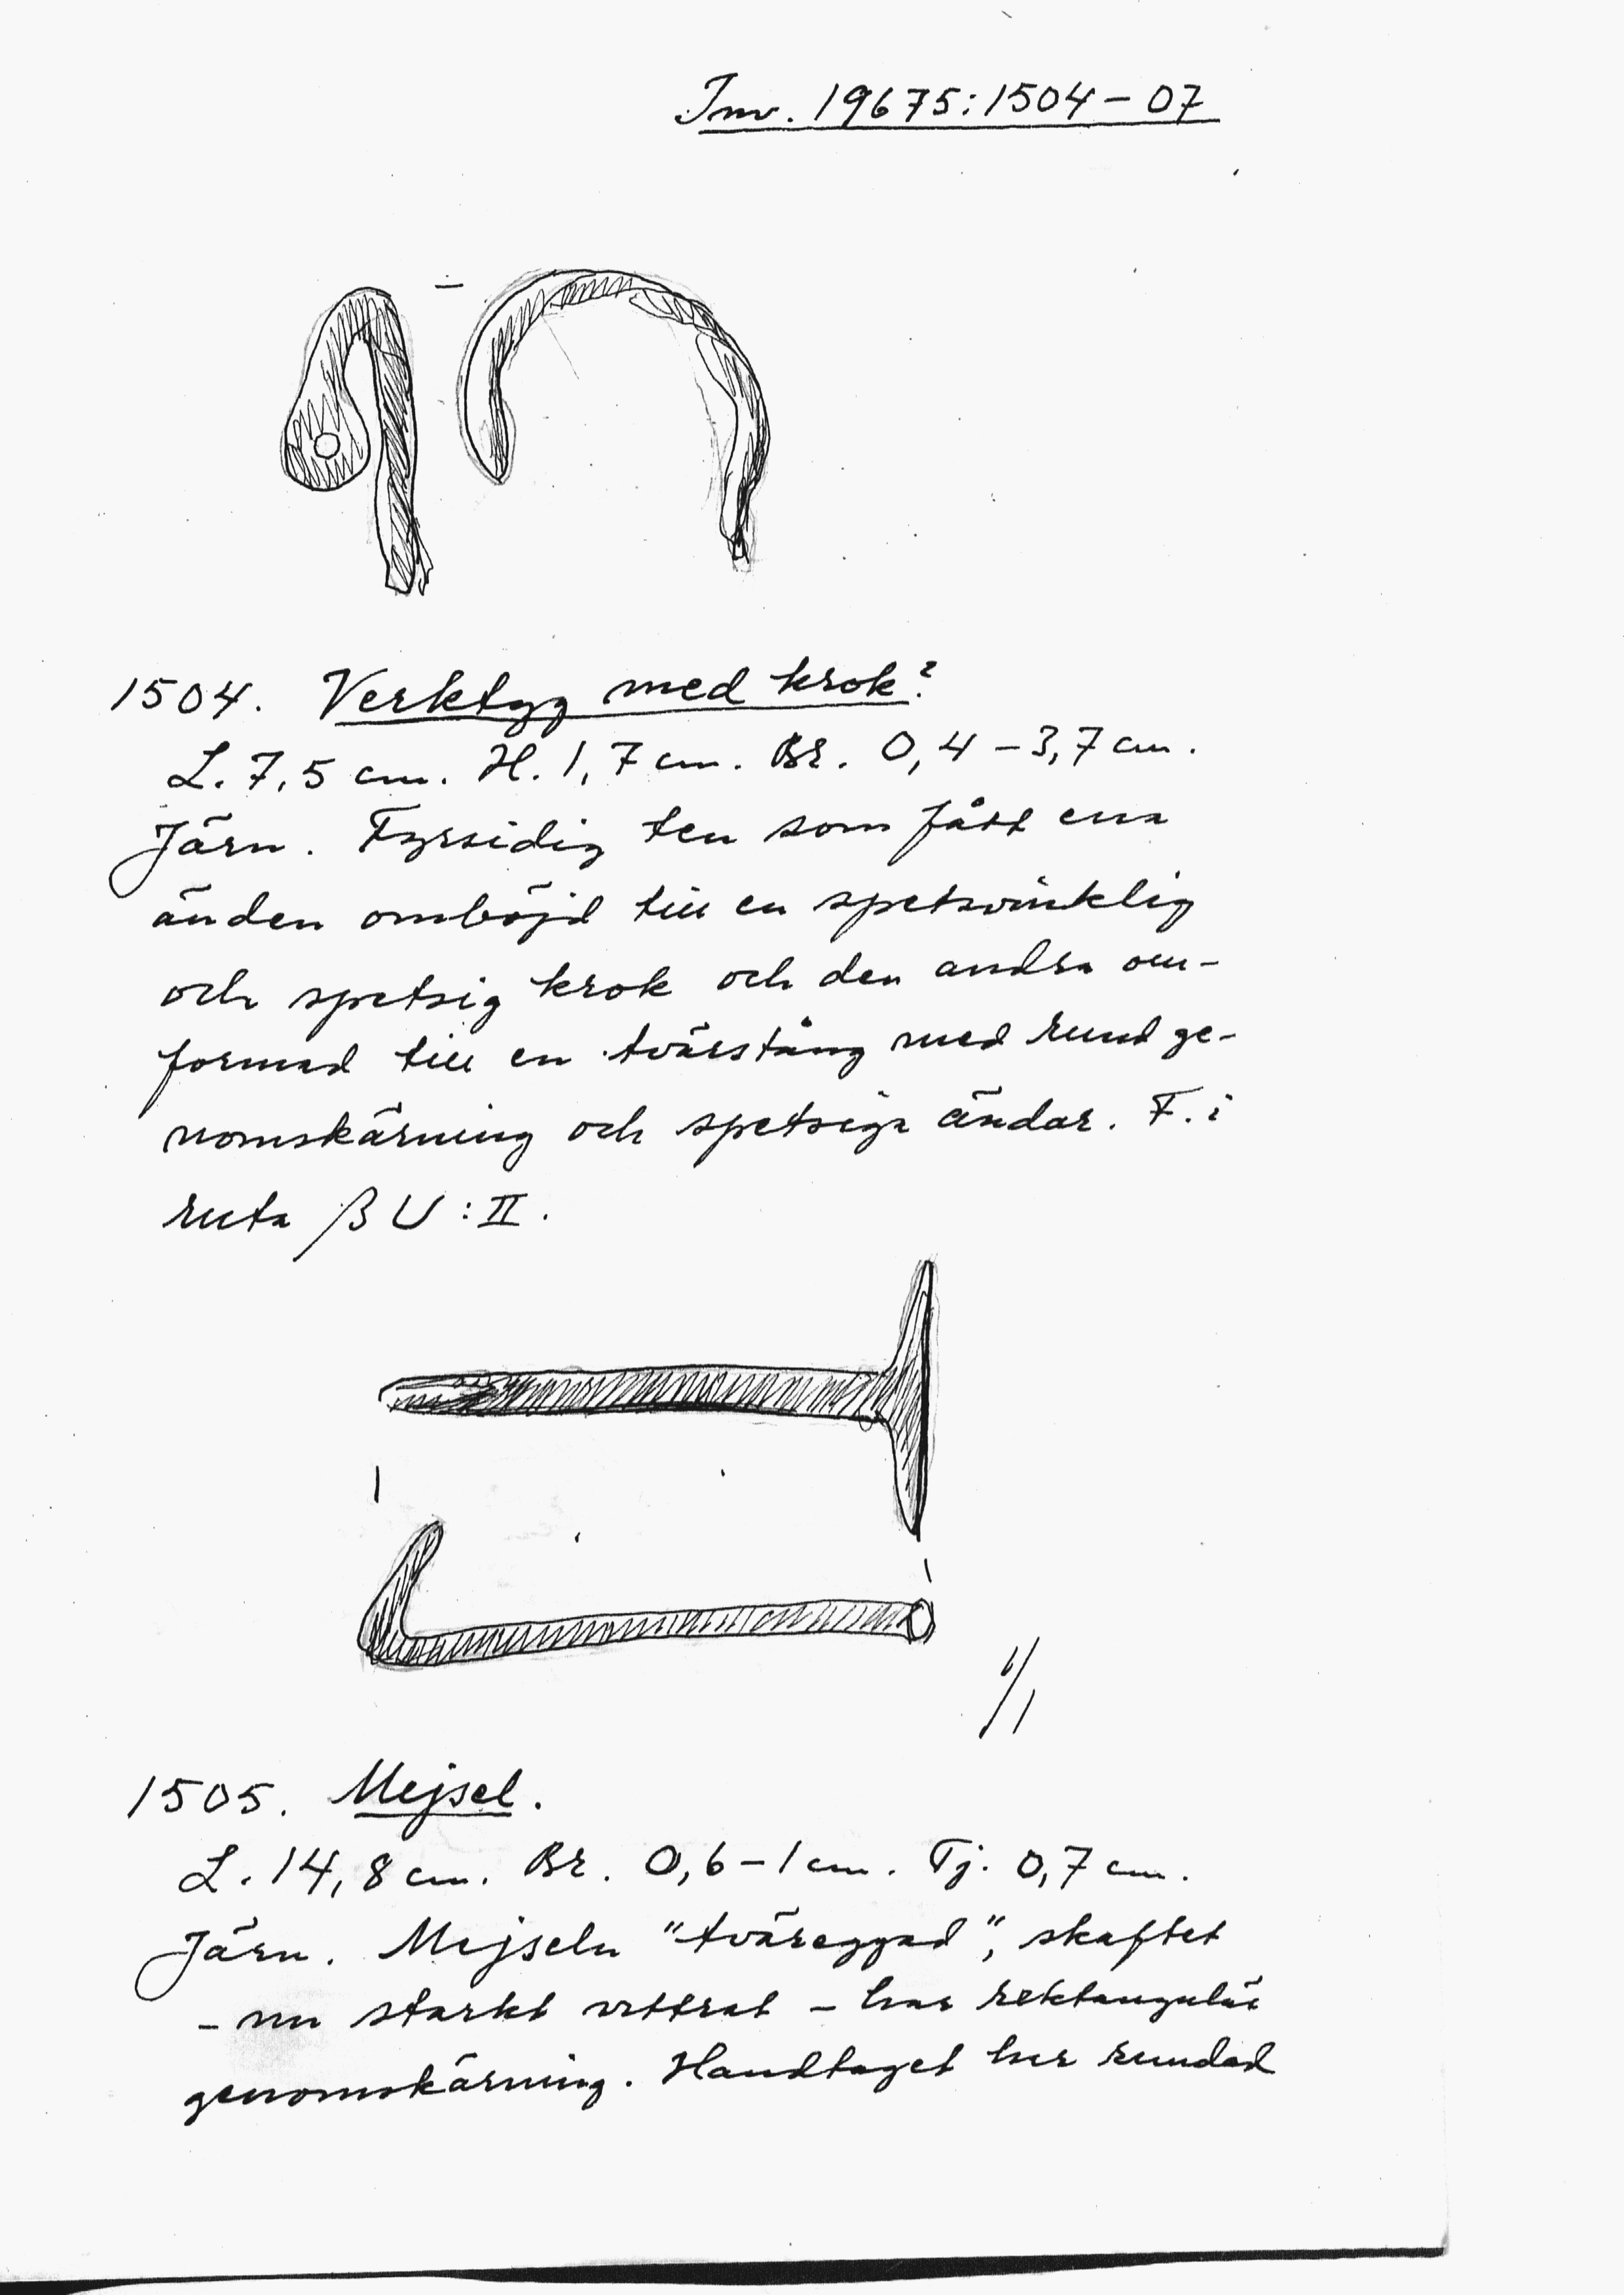 Inv. 19675:1504-07
1504. Verktyg med krok?
L. 7,5 cm. H. 1,7 cm. Br. 0,4-3,7 cm.
Järn. Fyrsidig ten som fått ena
änden omböjd till en spetsvinklig
och spetsig krok och den andra om-
formad till en tvärstång med rund ge-
nomskärning och spetsiga ändar. F. i
ruta β U:II.
1/1
1505. Mejsel.
L. 14,8 cm. Br. 0,6-1 cm. Tj. 0,7 cm.
Järn. Mejseln "tväreggad", skaftet
- nu starkt vittrat - har rektangulär
genomskärning. Handtaget har rundad